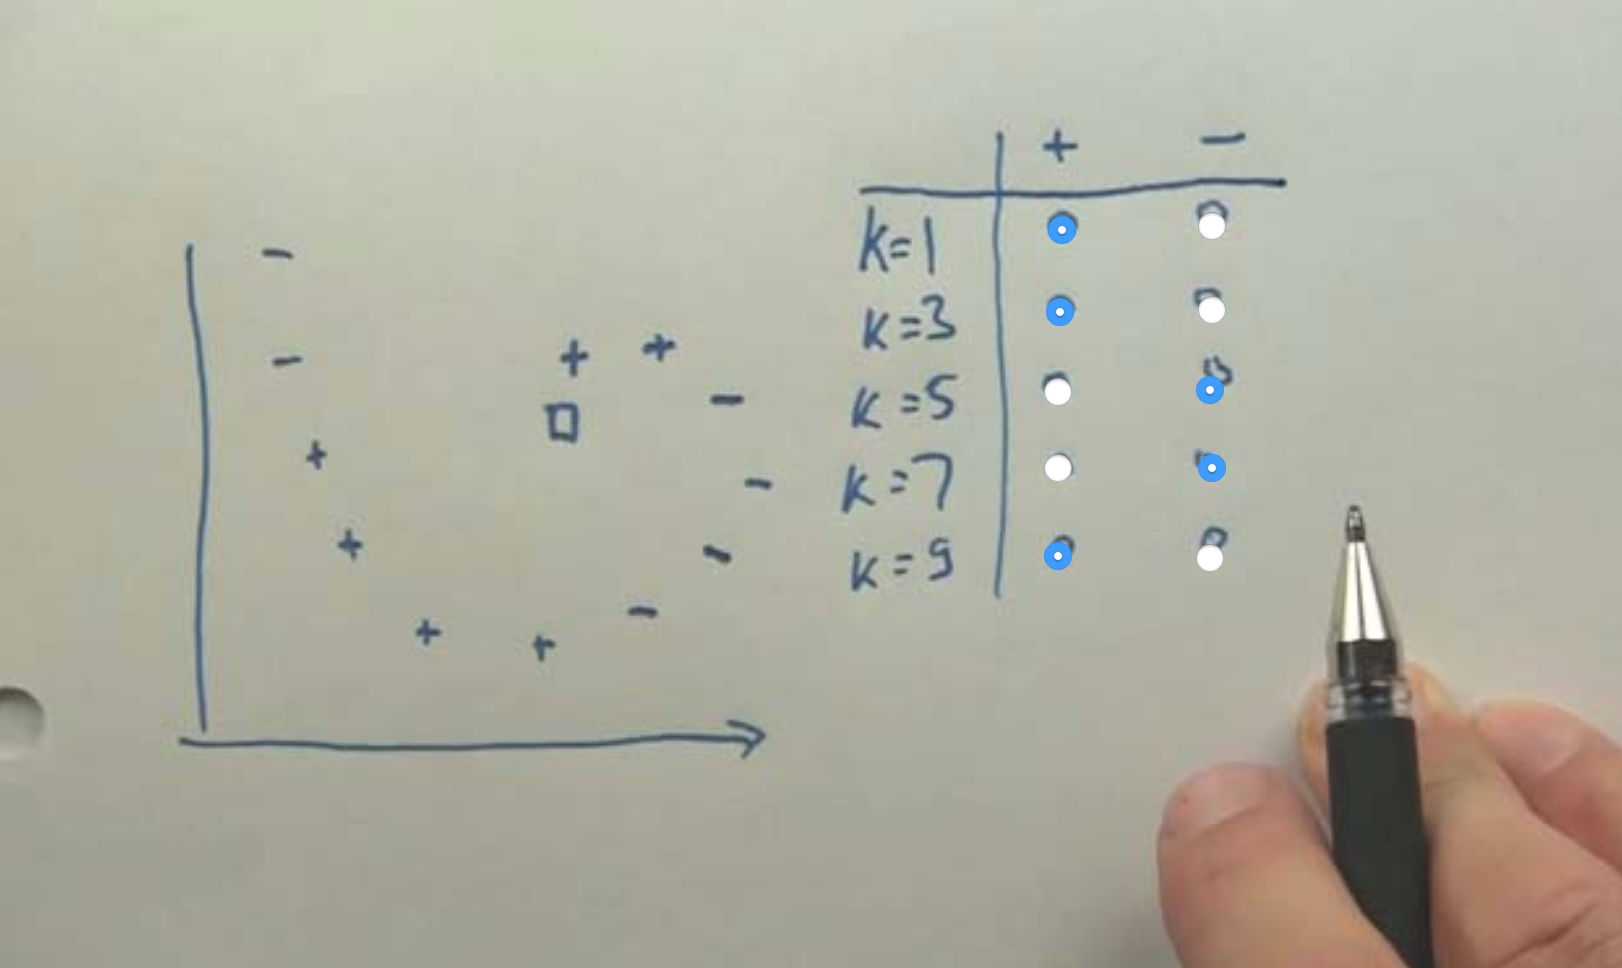 + −
k=1
k=3
k=5
k=7
k=9
−
+ +
−
−
+
−
+
−
−
+ +